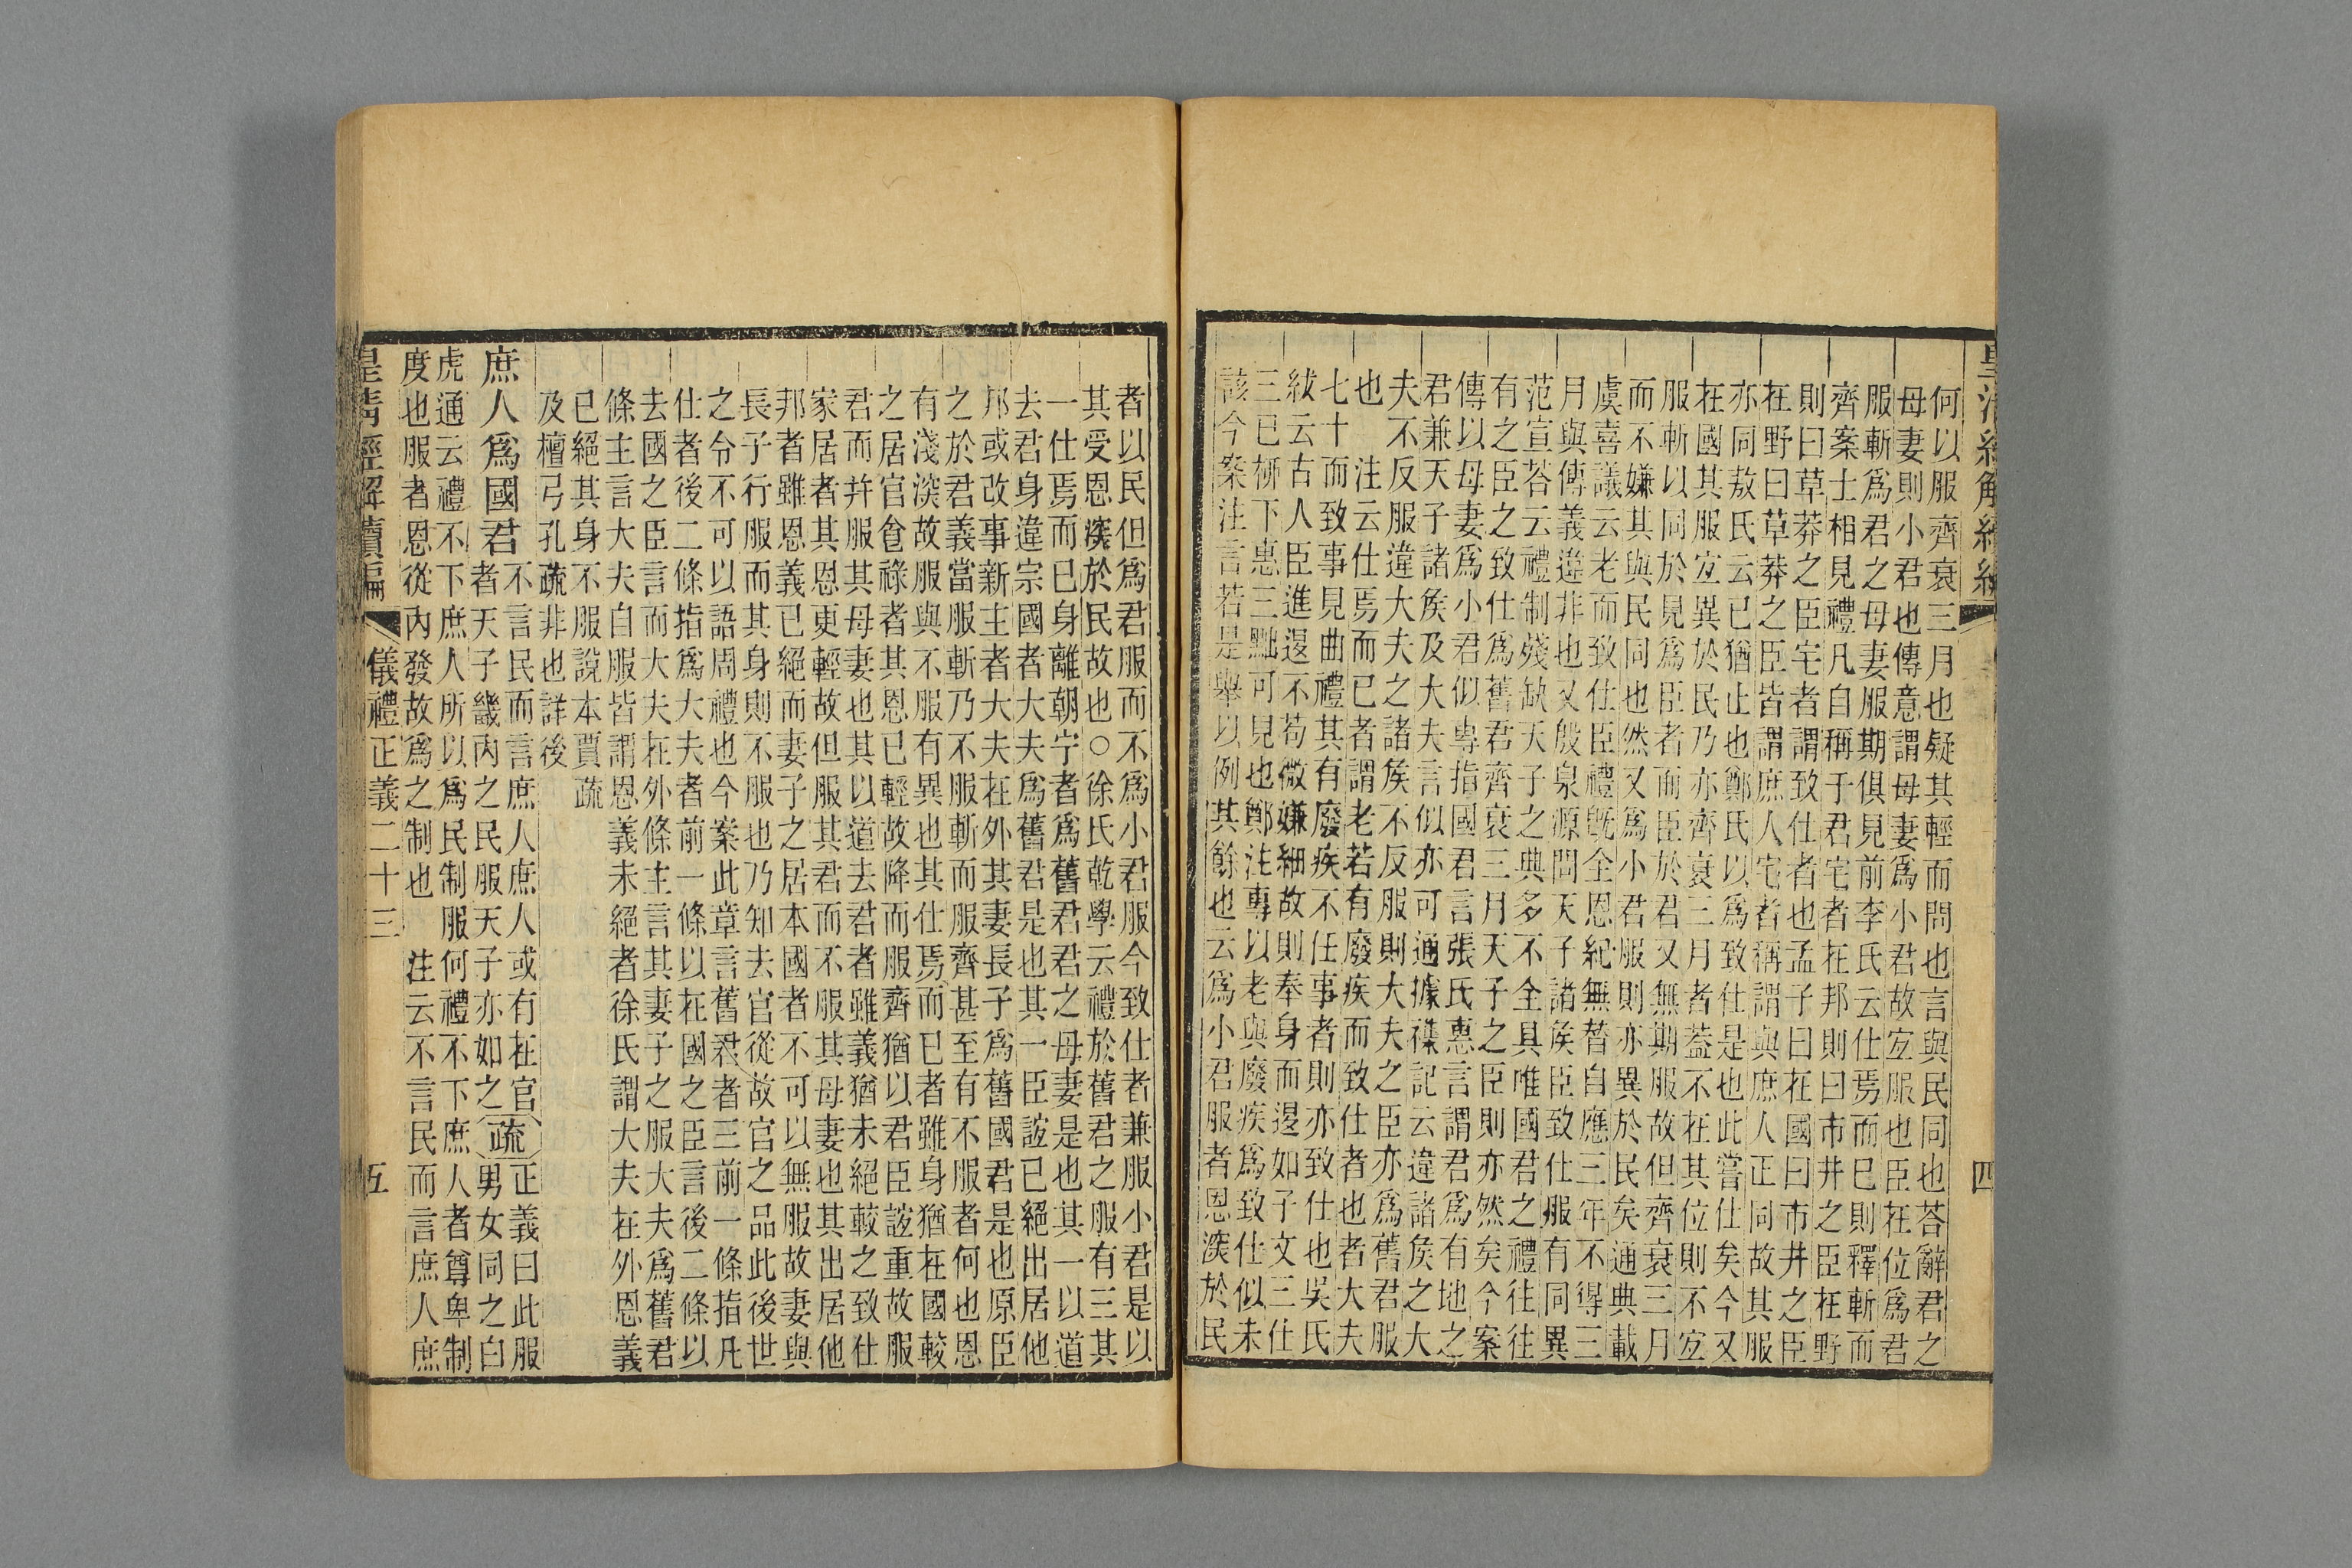 何以服齊衰三月也疑其輕而問也言與民同也荅辭君之
母妻則小君也傳意謂母妻爲小君故宐服也臣在位爲君
服斬爲君之母妻服期俱見前李氏云仕焉而巳則釋斬而
齊案士相見禮凡自稱于君宅者在邦則曰市井之臣在野
則曰草莽之臣宅者謂致仕者也孟子曰在國曰市井之臣
在野曰草莽之臣皆謂庶人宅者稱謂與庶人正同故其服
亦同敖氏云已猶止也鄭氏以爲致仕是也此嘗仕矣今又
在國其服宐異於民乃亦齊衰三月者葢不在其位則不宐
服斬以同於見爲臣者而臣於君又無期服故但齊衰三月
而不嫌其與民同也然又爲小君服則亦異於民矣通典載
虞喜議云老而致仕臣禮旣全恩紀無替自應三年不得三
月與傳義違非也又殷泉源問天子諸矦臣致仕服有同異
范宣荅云禮制殘缺天子之典多不全具唯國君之禮往往
有之臣之致仕爲舊君齊衰三月天子之臣則亦然矣今案
傳以母妻爲小君似專指國君言張氏惠言謂君爲有地之
君兼天子諸矦及大夫言似亦可通據襍記云違諸矦之大
夫不反服違大夫之諸矦不反服則大夫之臣亦爲舊君服
也　注云仕焉而已者謂老若有廢疾而致仕者也者大夫
七十而致事見曲禮其有廢疾不任事者則亦致仕也吳氏
紱云古人臣進退不苟微嫌細故則奉身而退如子文三仕
三已柳下惠三黜可見也鄭注專以老與廢疾爲致仕似未
該今案注言若是舉以例其餘也云爲小君服者恩深於民
四
者以民但爲君服而不爲小君服今致仕者兼服小君是以
其受恩深於民故也○徐氏乾學云禮於舊君之服有三其
一仕焉而已身離朝宁者爲舊君君之母妻是也其一以道
去君身違宗國者大夫爲舊君是也其一臣誼已絕出居他
邦或改事新主者大夫在外其妻長子爲舊國君是也原臣
之於君義當服斬乃不服斬而服齊甚至有不服者何也恩
有淺深故服與不服有異也其仕焉而已者雖身猶在國較
之居官食祿者其恩已輕故降而服齊猶以君臣誼重故服
君而幷服其母妻也其以道去君者雖義猶未絕較之致仕
家居者其恩更輕故但服其君而不服其母妻也其出居他
邦者雖恩義已絕而妻子之居本國者不可以無服故妻與
長子行服而其身則不服也乃知去官從故官之品此後世
之令不可以語周禮也今案此章言舊君者三前一條指凡
仕者後二條指爲大夫者前一條以在國之臣言後二條以
去國之臣言而大夫在外條主言其妻子之服大夫爲舊君
條主言大夫自服皆謂恩義未絕者徐氏謂大夫在外恩義
已絕其身不服說本賈疏
及檀弓孔疏非也詳後
庶人爲國君不言民而言庶人庶人或有在官疏正義曰此服
者天子畿內之民服天子亦如之男女同之白
虎通云禮不下庶人所以爲民制服何禮不下庶人者尊卑制
度也服者恩從內發故爲之制也　注云不言民而言庶人庶
皇清經解續編　儀禮正義二十三　五